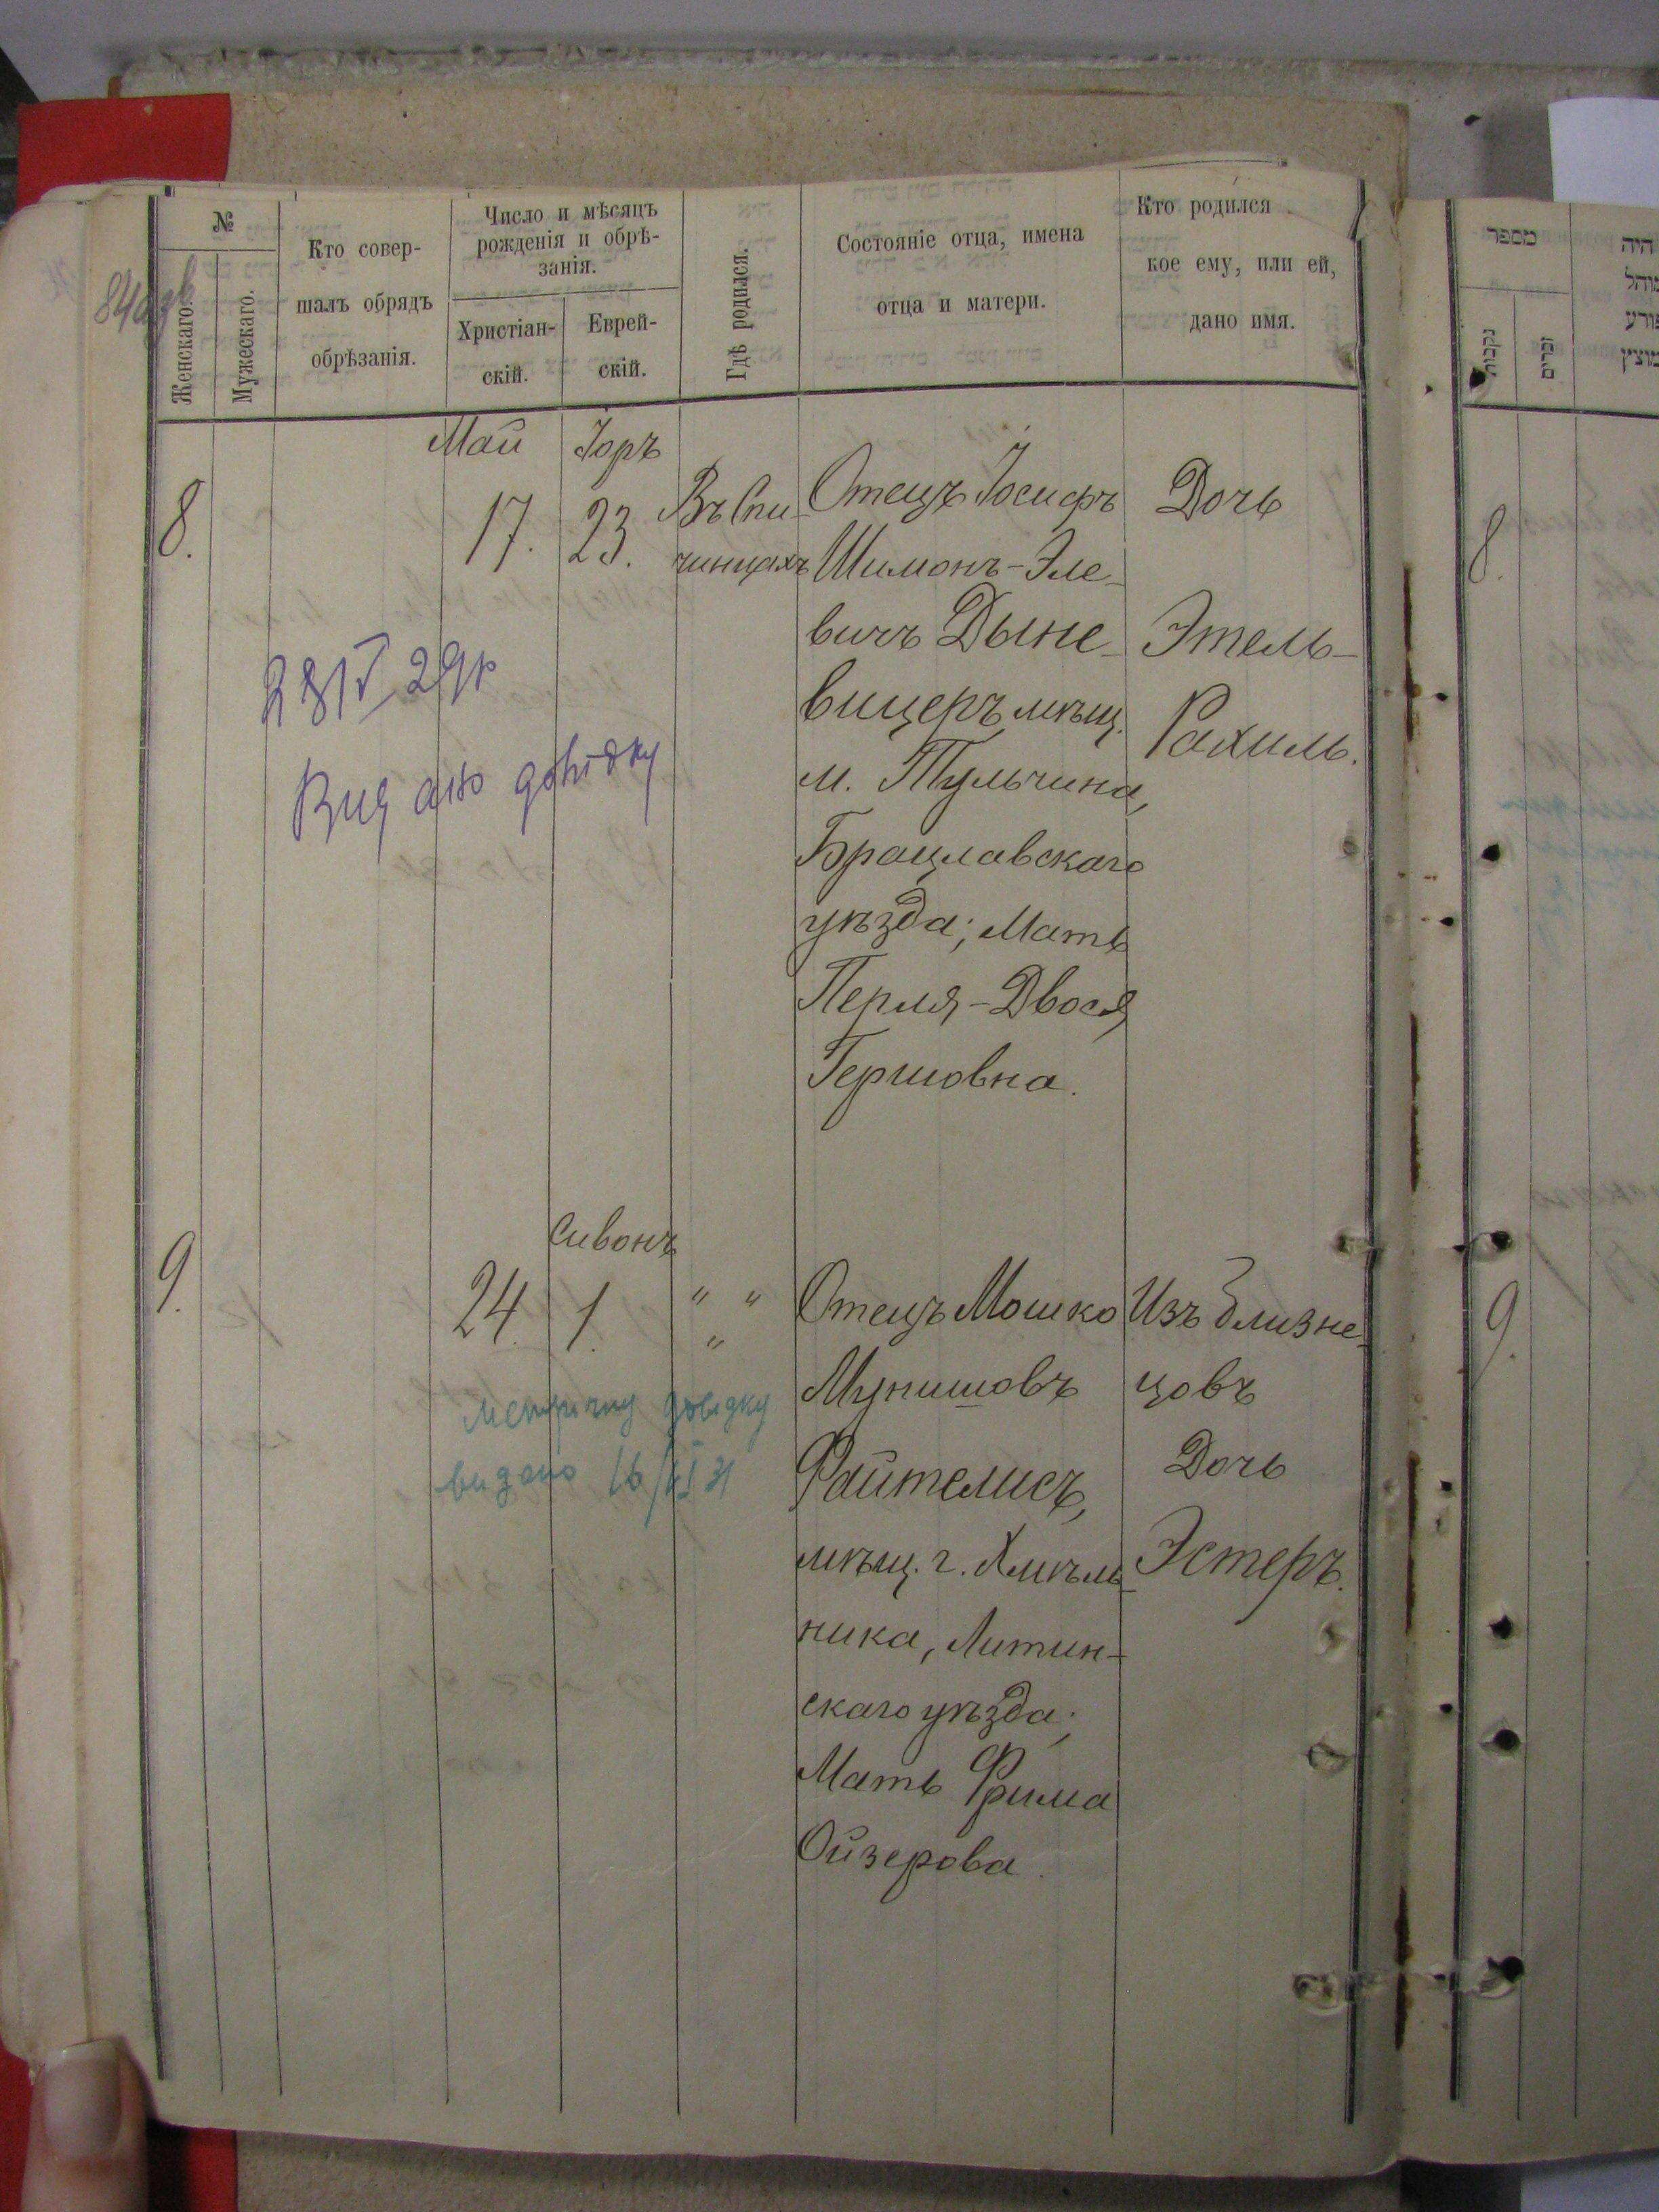 №
Женскаго.
Мужескаго.
Кто совер-
шалъ обрядъ
обрѣзанія.
Число и мѣсяцъ
рожденія и обрѣ-
занія.
Христіан-
скій.
Еврей-
скій.
Гдѣ родился.
Состояніе отца, имена
отца и матери.
Кто родился
кое ему, или ей,
дано имя.
Май Іоръ
8.
17. 23.
Въ Спи-
чинцахъ
Отецъ Іосифъ
Шимонъ-Эле-
вичъ Дыне-
вицеръ мѣщ.
м. Тульчина,
Брацлавскаго
уѣзда; Мать
Перля-Двося
Гершовна.
Дочь
Этель-
Рахиль.
28/V 29р
Видано довідку
Сивонъ
9.
24. 1.
" "
"
Отецъ Мошко
Мунишовъ
Файтелисъ,
мѣщ. г. Хмѣль-
ника, Литин-
скаго уѣзда;
Мать Фрима
Ойзерова.
Изъ близне-
цовъ
Дочь
Эстеръ.
Метричну довідку
видано 16/
מספר
נקבות
זכרים
היה
8.
9.